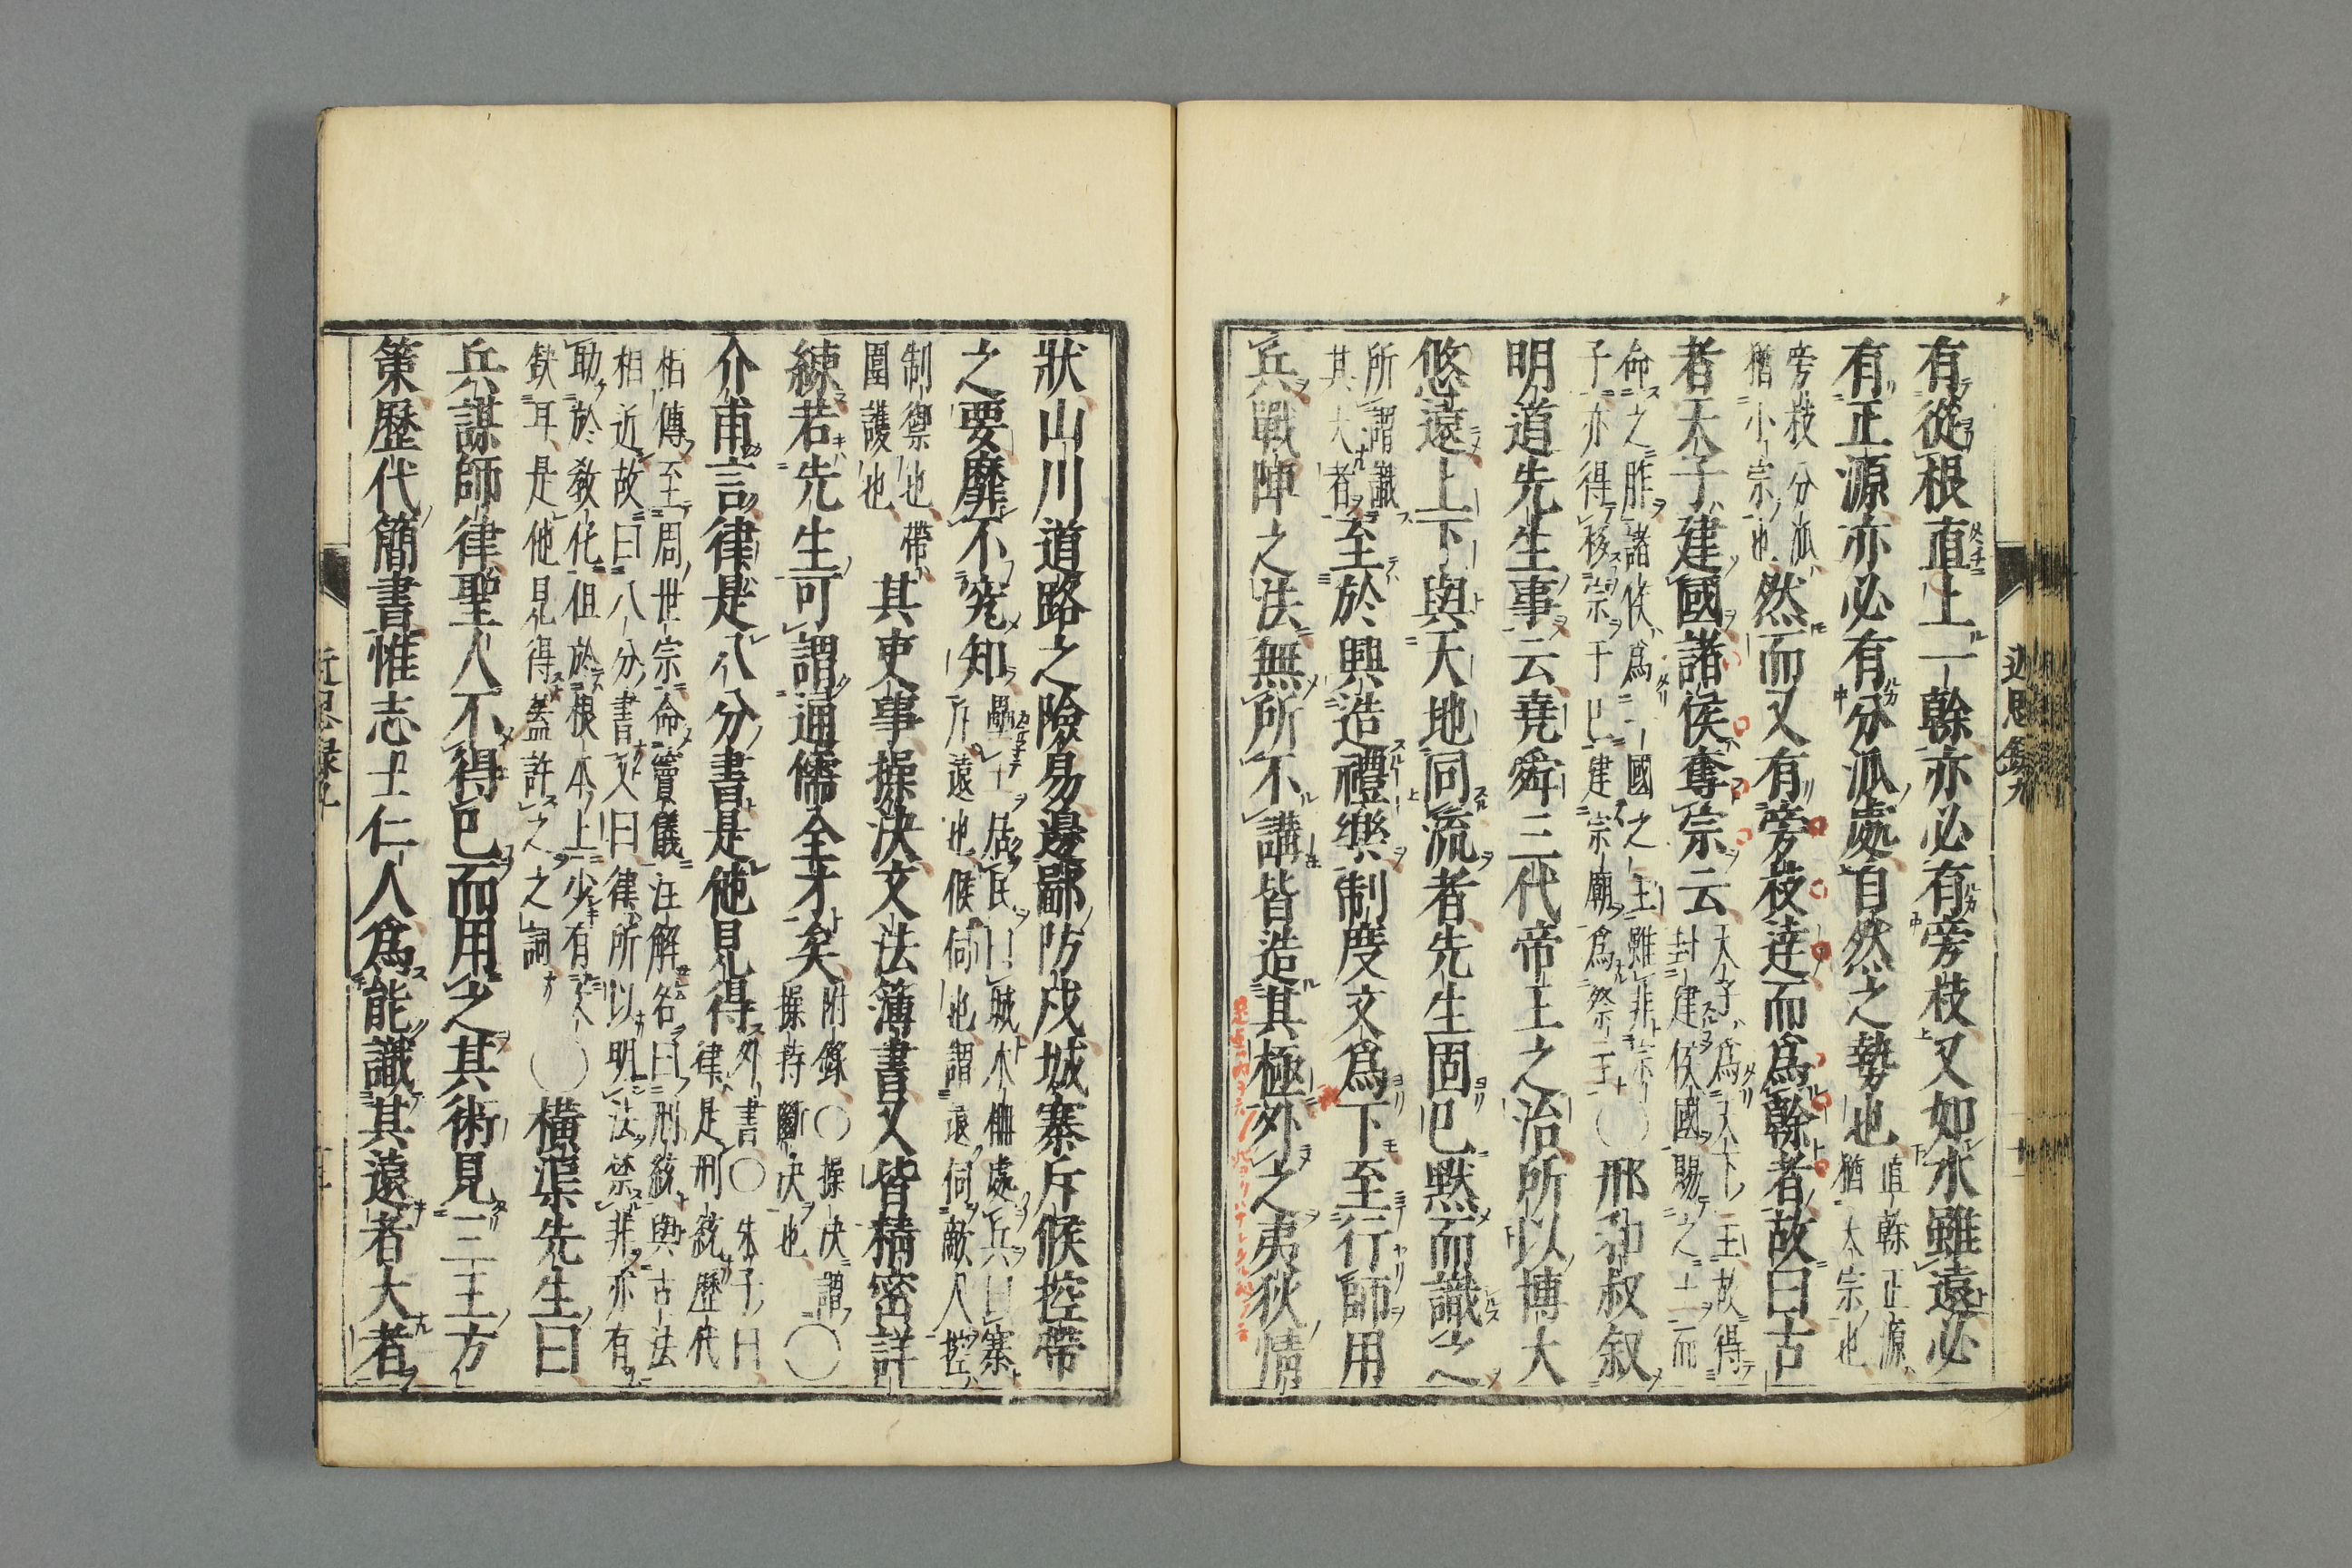 有從根直上一幹亦必有旁枝又如水雖遠必
有正源亦必有分派處自然之勢也直幹正源
猶大宗也
旁枝分派
猶小宗也然而又有旁枝達而爲幹者故曰古
者天子建國諸侯奪宗云天子爲天下主故得
封建侯國賜之土而
命之胙諸侯爲一國之主雖非宗
子亦得移宗于己建宗廟爲祭主○邢和叔叙
明道先生事云堯舜三代帝王之治所以博大
悠遠上下與天地同流者先生固已默而識之
所謂識
其大者至於興造禮樂制度文爲下至行師用
兵戰陣之法無所不講皆造其極外之夷狄情
近思錄九
狀山川道路之險易邊鄙防戍城寨斥候控帶
之要靡不究知壘土居民曰城木柵處兵曰寨
斥遠也候伺也謂遠伺敵人控
制禦也帶
圍護也其吏事操決文法簿書又皆精密詳
練若先生可謂通儒全才矣附錄○操決謂
操持斷決也○
介甫言律是八分書是他見得外書○朱子曰
律是刑統歷代
相傳至周世宗命竇儀注解名曰刑統與古法
相近故曰八分書又曰律所以明法禁非亦有
助於敎化但於根本上少有
欽耳是他見得蓋許之之詞○橫渠先生曰
兵謀師律聖人不得已而用之其術見三王方
策歷代簡書惟志士仁人爲能識其遠者大者